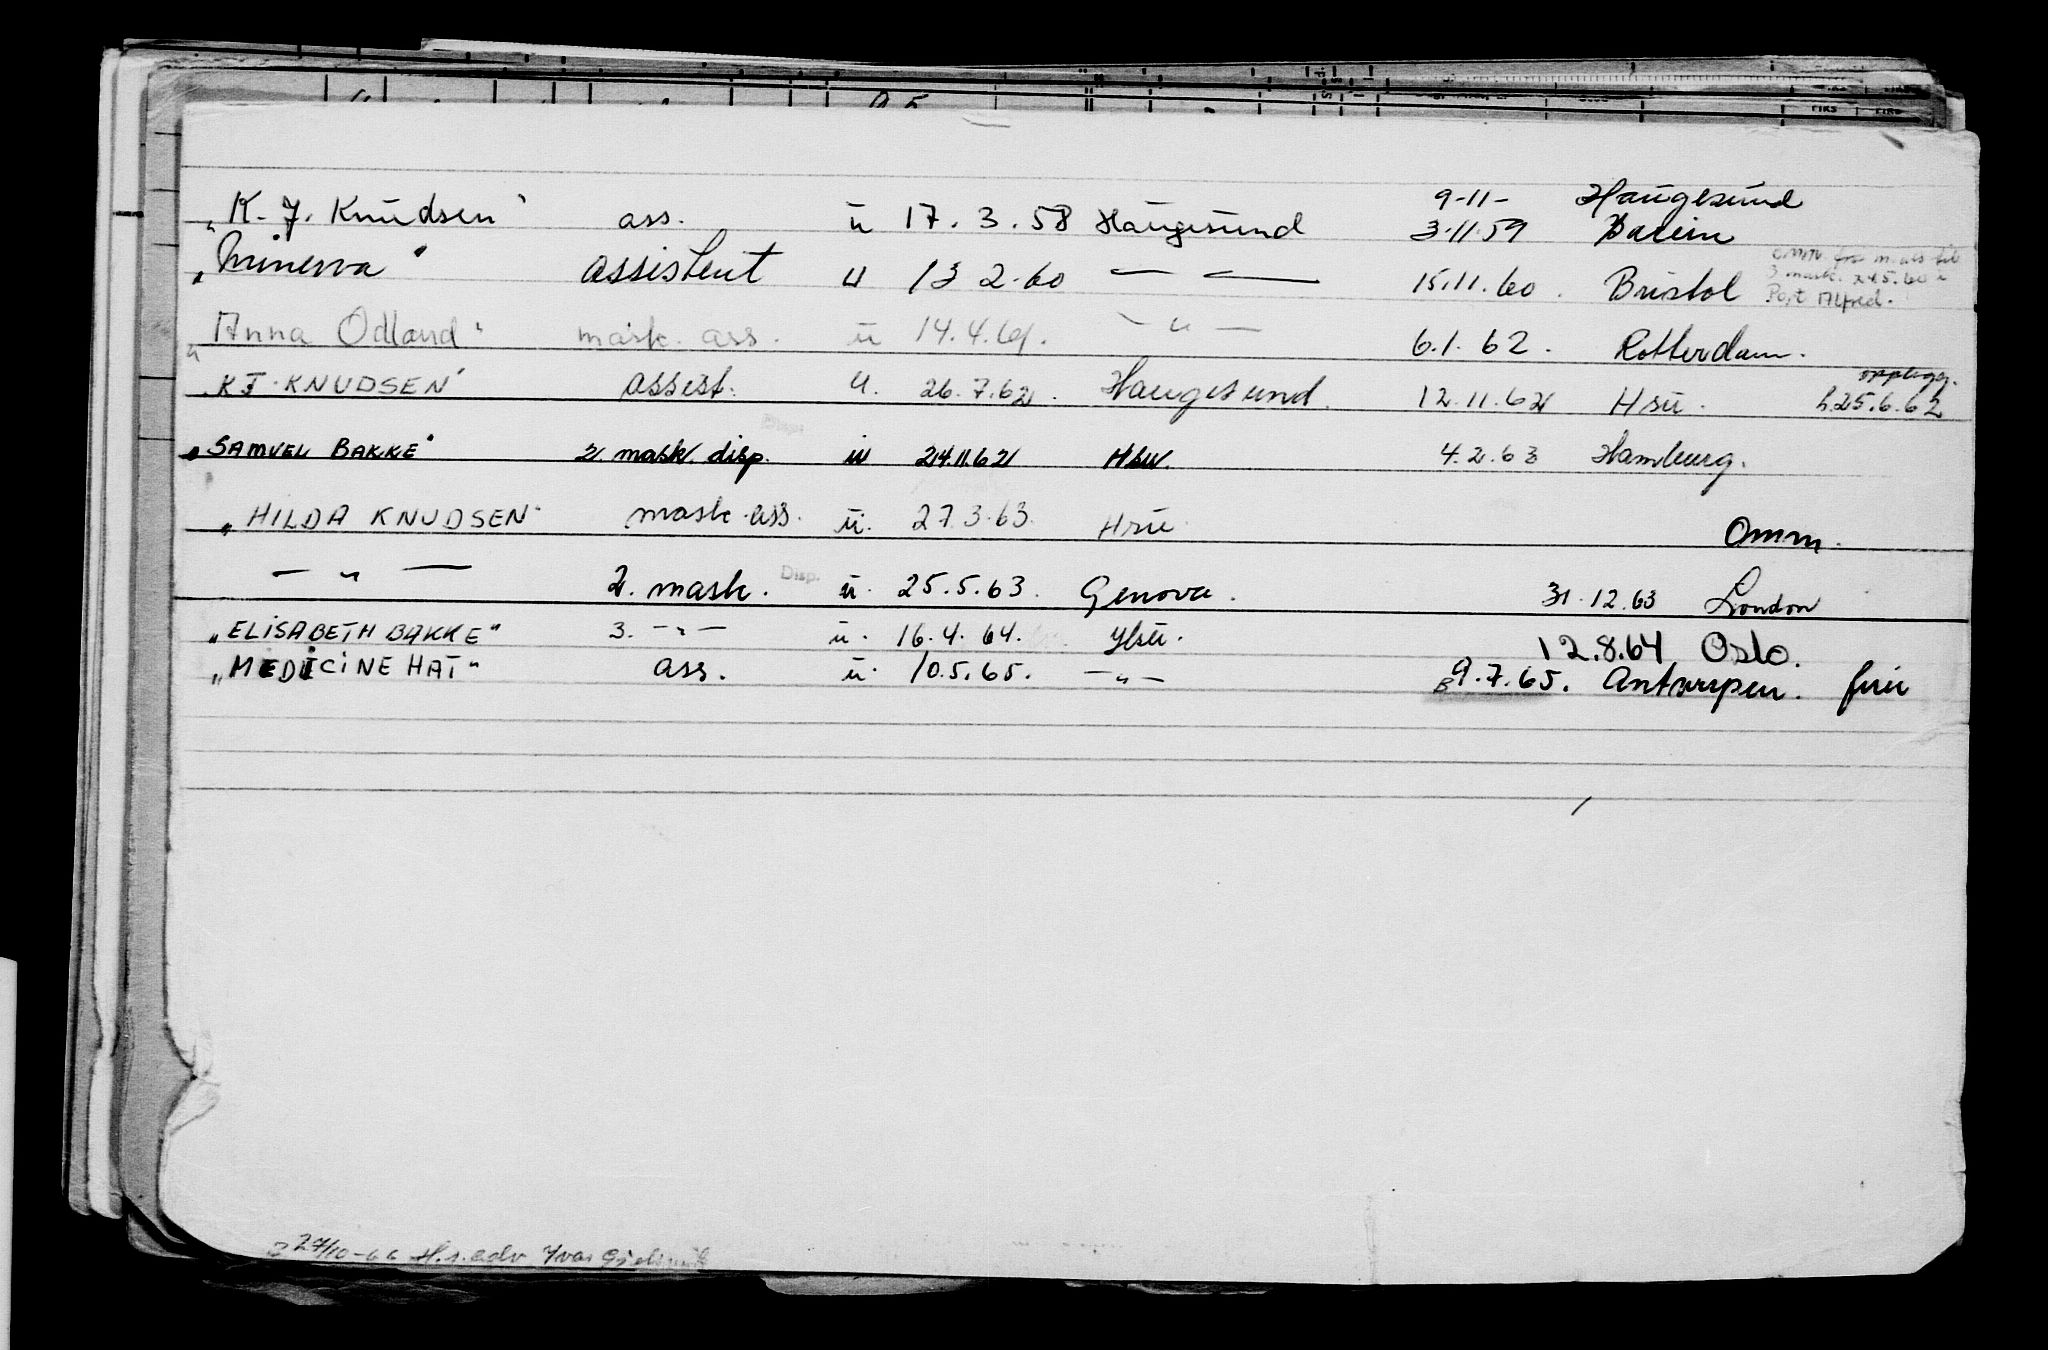 9-11- Haugesund
„K. J. Knudsen" ass. u 17.3.58 Haugesund 3.11.59
„Minerva" assistent u 13 2.60 — — 15.11.60. Bristol omm. fra m.ass til
3 mask. 24.5.60 i
Port Alfred.
„Anna Odland" mask. ass. u 14.4.61. — " — 6.1.62. Rotterdam.
„KJ. KNUDSEN" assist. u. 26.7.62. Haugesund. 12.11.62 Hsu. opplegg.
h. 25.6.62
„SAMUEL BAKKE" 2. mask. disp. u 24.11.62 Hsu. 4.2.63 Hamburg.
„HILDA KNUDSEN" mask. ass. u. 27.3.63. Hsu Omm.
— " — 2. mask. Disp. u. 25.5.63. Genova. 31.12.63 London
„ELISABETH BAKKE" 3. — " — u. 16.4.64. Hsu. 12.8.64 Oslo.
„MEDICINE HAT" ass. u. 10.5.65. — " — 9.7.65. Antwerpen. ferie
27/10-66 H.r.adv Ivar